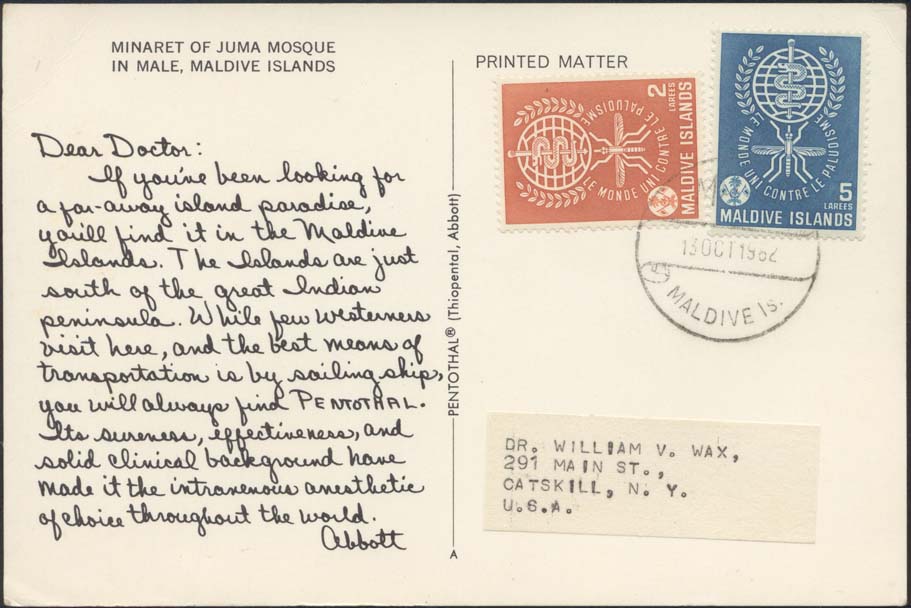 MINARET OF JUMA MOSQUE
IN MALE, MALDIVE ISLANDS
Dear Doctor:
If you've been looking for
a far-away island paradise,
you'll find it in the Maldive
Islands. The Islands are just
south of the great Indian
peninsula. While few westerners
visit here, and the best means of
transportation is by sailing ship,
you will always find PENTOTHAL.
Its sureness, effectiveness, and
solid clinical background have
made it the intravenous anesthetic
of choice throughout the world.
Abbott
PENTOTHAL® (Thiopental, Abbott)
A
PRINTED MATTER
2
LAREES
MALDIVE ISLANDS
LE MONDE UNI CONTRE LE PALUDISME
LE MONDE UNI CONTRE LE PALUDISME
5
LAREES
MALDIVE ISLANDS
13 OCT 1962
MALDIVE Is.
DR. WILLIAM V. WAX,
291 MAIN ST.,
CATSKILL, N. Y.
U.S.A.